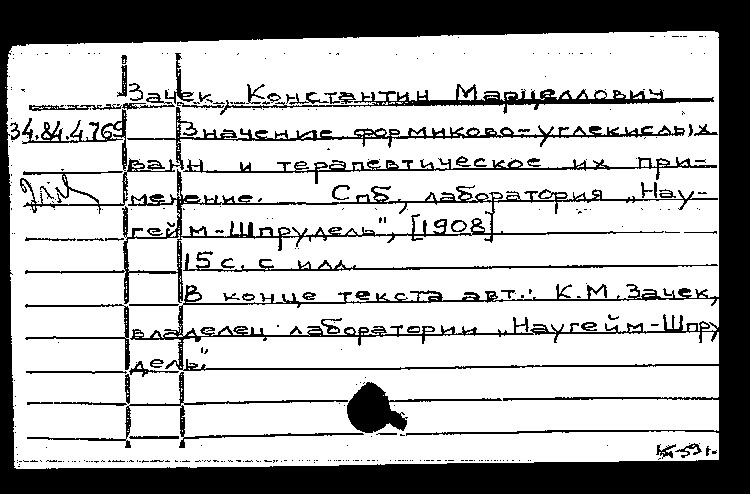 Зачек, Константин Марцеллович
34.84.4.769 Значение формиково-углекислых
ванн и терапевтическое их при-
менение. Спб., лаборатория „Нау-
гейм-Шпрудель", [1908].
15 с. с илл.
В конце текста авт.: К.М. Зачек,
владелец лаборатории „Наугейм-Шпру
дель".